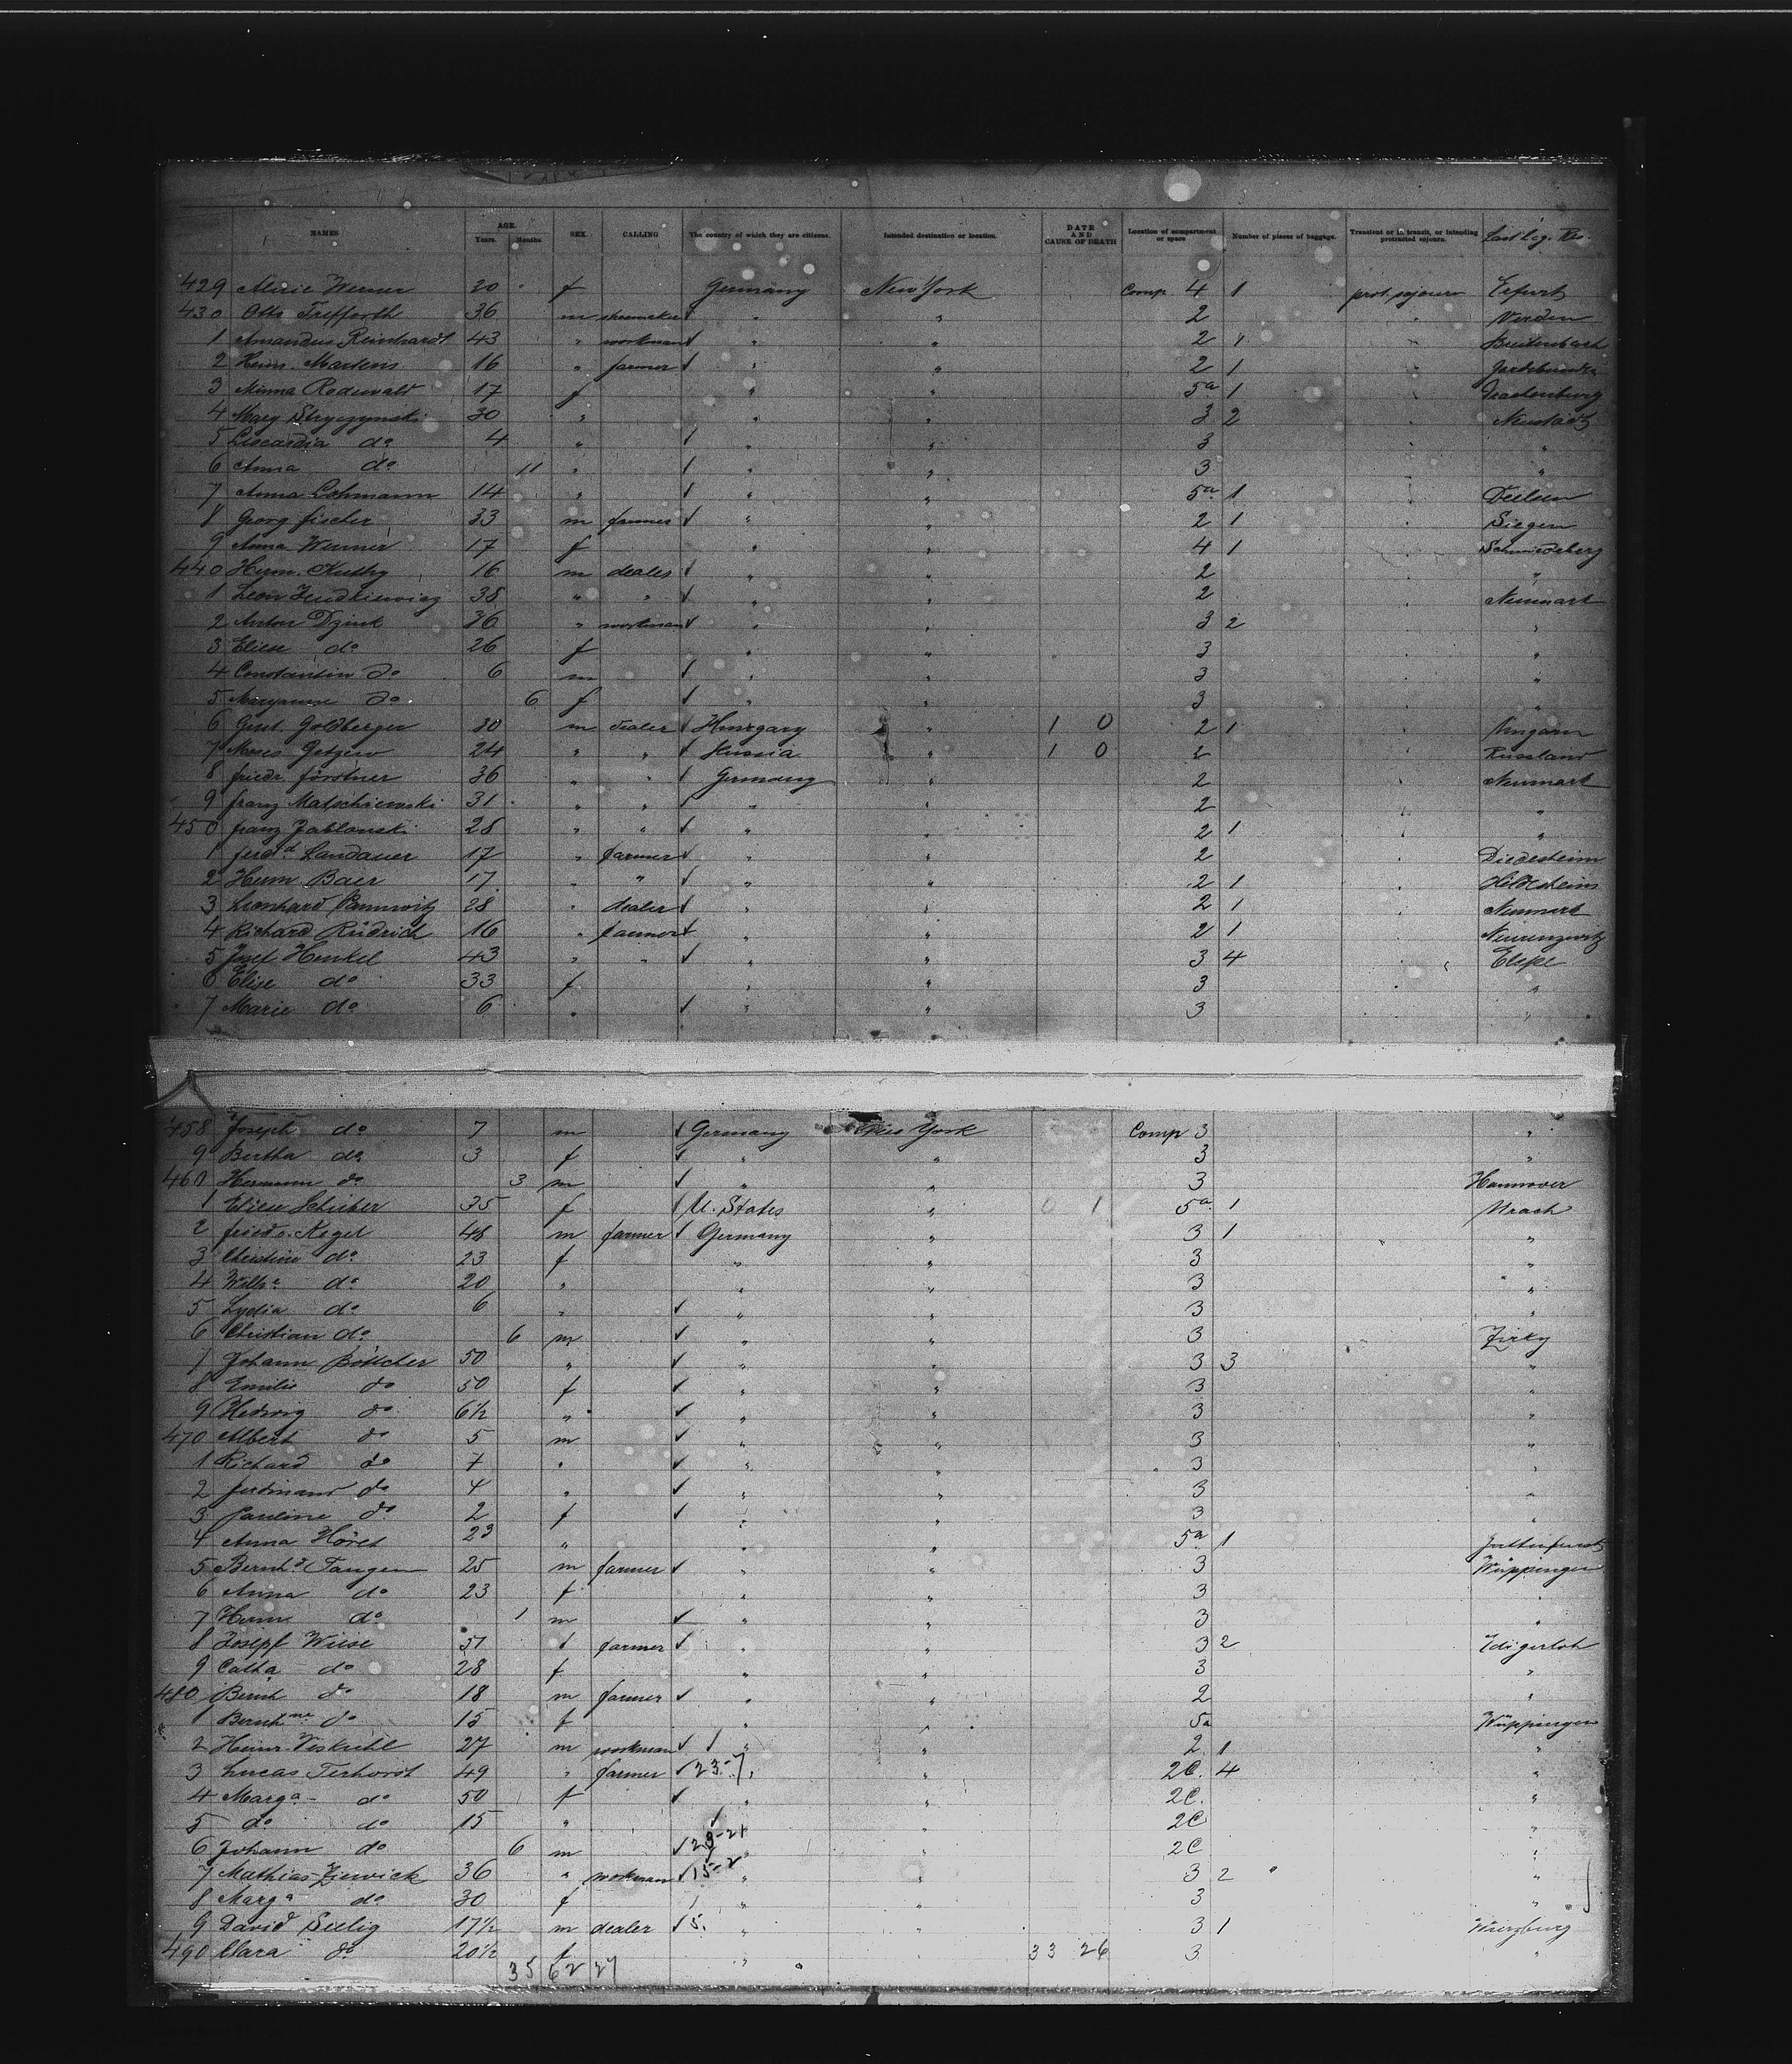 NAMES AGE. Years. Months SEX. CALLING The country of which they are citizens. Intended destination or location. DATE AND CAUSE OF DEATH Location of compartment or space Number of pieces of baggage. Transient or in transit, or intending protracted sojourn. Last Leg. Res.
429 Werner 20 f Germany New York Comp 4 1 prot. sojourn Erfurt
430 Otto Trefforth 36 m shoemaker " " 2 " Verden
1 Amandus Reinhardt 43 " workman " " 2 1 " Breitenbach
2 Heinr. Martens 16 " farmer " " 2 1 "
3 Minna Rodewald 17 f " " 5a 1 " Drackenburg
4 Mary Stryczynski 30 " " " 3 2 " Neustadt
5 Leocardia do 4 " " " 3 " "
6 Anna do 11 " " " 3 " "
7 Anna Lohmann 14 " " " 5a 1 "
8 Georg Fischer 33 m farmer " " 2 1 " Siegen
9 Anna Werner 17 f " " 4 1 " Schmiedeberg
440 Herm. Kuthy 16 m dealer " " 2 " "
1 Leon Jendkiewicz 38 " " " " 2 " Neumark
2 Anton Dzink 36 " workman " " 3 2 " "
3 Eliese do 26 f " " 3 " "
4 Constantin do 6 m " " 3 " "
5 Maryanne do 6 f " " 3 " "
6 Gust. Goldberger 30 m dealer Hungary " 1 0 2 1 " Ungarn
7 Moses Getzew 24 " " Russia " 1 0 2 " Russland
8 Friedr. Förstner 36 " " Germany " 2 " Neumark
9 Franz Malschiewski 31 " " " " 2 " "
450 Franz Jablonski 28 " " " " 2 1 " "
1 Ferdd Landauer 17 " farmer " " 2 " Diedesheim
2 Herm. Baer 17 " " " " 2 1 " Hildesheim
3 Leonhard Pannwitz 28 " dealer " " 2 1 " Neumark
4 Richard Rüdrich 16 " farmer " " 2 1 "
5 Josef Henkel 43 " " " " 3 4 " Elspe
6 Elise do 33 f " " 3 "
7 Marie do 6 " " " 3 "
458 Joseph do 7 m Germany New York Comp 3 "
9 Bertha do 3 f " " 3 "
460 Hermann do 3 m " " 3 Hannover
1 Eliese Schuber 35 f U. States " 0 1 5a 1 Urach
2 Friedr. Keget 48 m farmer Germany " 3 1 "
3 Christine do 23 f " " 3 "
4 Wilhe do 20 " " " 3 "
5 Lydia do 6 " " " 3 "
6 Christian do 6 m " " 3 Zirky
7 Johann Böttcher 50 " " " 3 3 "
8 Emilie do 50 f " " 3 "
9 Hedwig do 6½ " " " 3 "
470 Albert do 5 m " " 3 "
1 Richard do 7 " " " 3 "
2 Ferdinand do 4 " " " 3 "
3 Pauline do 2 f " " 3 "
4 Anna Höret 23 " " " 5a 1
5 Bernhd Tangen 25 m farmer " " 3 Wüppingen
6 Anna do 23 f " " 3 "
7 Herm do 1 m " " 3 "
8 Josepf Wiese 51 " farmer " " 3 2
9 Catha do 28 f " " 3 "
480 Bernh do 18 m farmer " " 2 "
1 Bernhne do 15 f " " 5a Wüppingen
2 Heinr. Viskuhl 27 m workman " " 2 1 "
3 Lucas Terhorst 49 " farmer 23-7 " " 2C. 4 "
4 Marga do 50 f " " 2C. "
5 do do 15 " " 2C "
6 Johann do 6 m " " 2C "
7 Mathias Ziewick 36 " workman 15-2 " " 3 2 "
8 Marga do 30 f " " 3 "
9 David Seelig 17½ m dealer 5. " " 3 1 Würzburg
490 Clara do 20½ f " 33 26 3 "
35 62 27